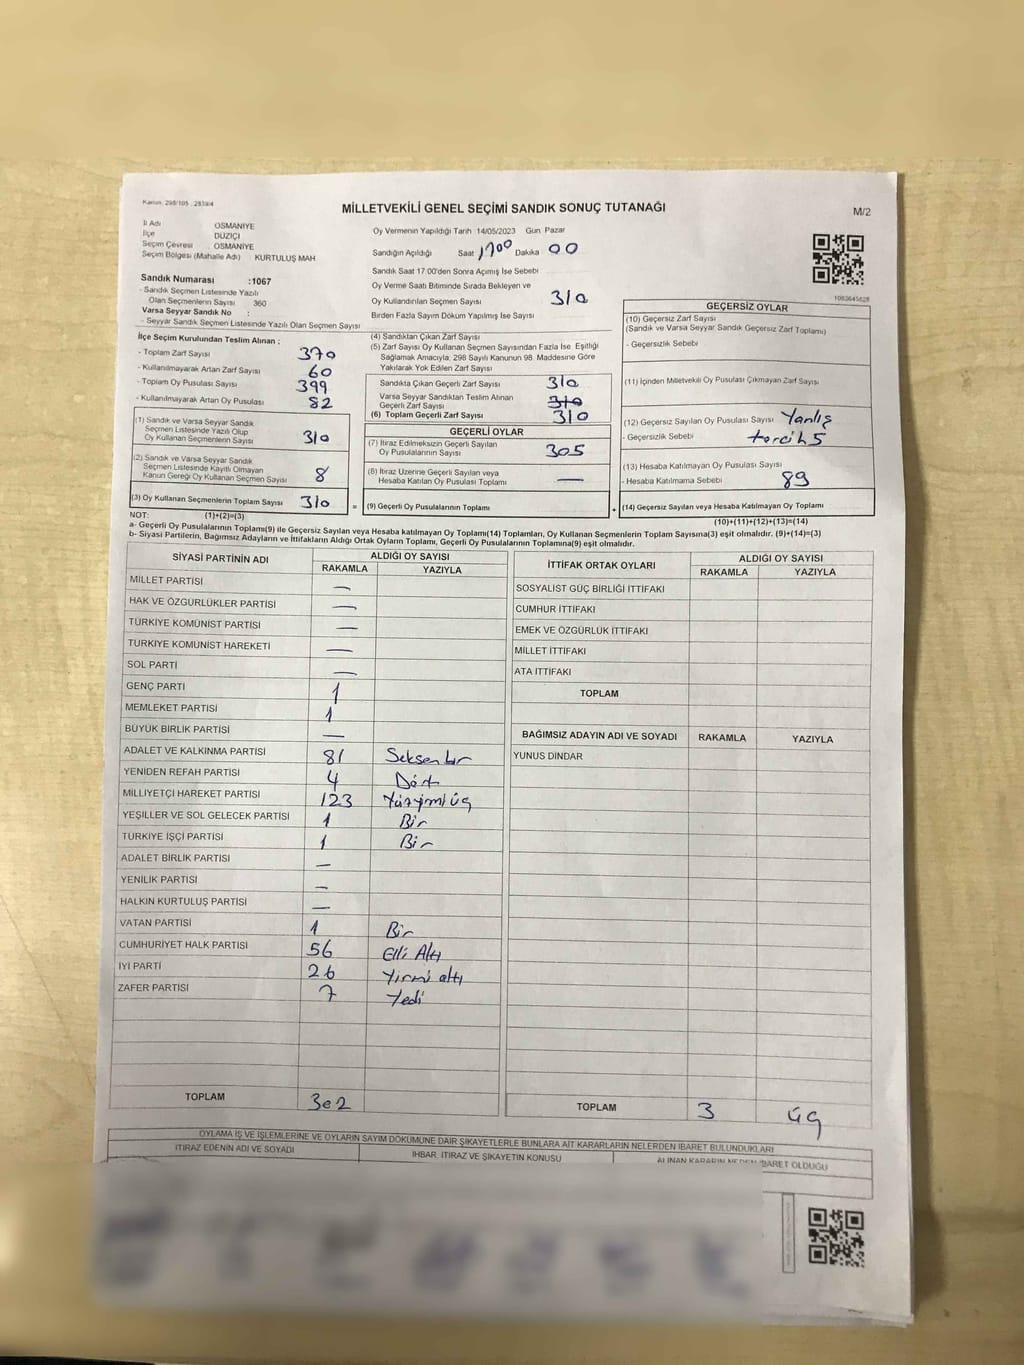 Kanun: 298/105 , 2839/4
MİLLETVEKİLİ GENEL SEÇİMİ SANDIK SONUÇ TUTANAĞI
M/2
İl Adı OSMANİYE
İlçe DÜZİÇİ
Seçim Çevresi : OSMANİYE
Seçim Bölgesi (Mahalle Adı) KURTULUŞ MAH
Sandık Numarası :1067
- Sandık Seçmen Listesinde Yazılı
Olan Seçmenlerin Sayısı 360
Varsa Seyyar Sandık No :
- Seyyar Sandık Seçmen Listesinde Yazılı Olan Seçmen Sayısı
Oy Vermenin Yapıldığı Tarih 14/05/2023 Gün Pazar
Sandığın Açıldığı Saat 1700 Dakika 00
Sandık Saat 17.00'den Sonra Açımış İse Sebebi
Oy Verme Saati Bitiminde Sırada Bekleyen ve
Oy Kullandırılan Seçmen Sayısı 310
Birden Fazla Sayım Döküm Yapılmış İse Sayısı
1083645828
İlçe Seçim Kurulundan Teslim Alınan :
- Toplam Zarf Sayısı 370
- Kullanılmayarak Artan Zarf Sayısı 60
- Toplam Oy Pusulası Sayısı 399
- Kullanılmayarak Artan Oy Pusulası 82
(1) Sandık ve Varsa Seyyar Sandık
Seçmen Listesinde Yazılı Olup
Oy Kullanan Seçmenlerin Sayısı 310
(2) Sandık ve Varsa Seyyar Sandık
Seçmen Listesinde Kayıtlı Olmayan
Kanun Gereği Oy Kullanan Seçmen Sayısı 8
(3) Oy Kullanan Seçmenlerin Toplam Sayısı 310
(4) Sandıktan Çıkan Zarf Sayısı
(5) Zarf Sayısı Oy Kullanan Seçmen Sayısından Fazla İse, Eşitliği
Sağlamak Amacıyla, 298 Sayılı Kanunun 98. Maddesine Göre
Yakılarak Yok Edilen Zarf Sayısı
Sandıkta Çıkan Geçerli Zarf Sayısı 310
Varsa Seyyar Sandıktan Teslim Alınan
Geçerli Zarf Sayısı 310
(6) Toplam Geçerli Zarf Sayısı 310
GEÇERLİ OYLAR
(7) İtiraz Edilmeksizin Geçerli Sayılan
Oy Pusulalarının Sayısı 305
(8) İtiraz Üzerine Geçerli Sayılan veya
Hesaba Katılan Oy Pusulası Toplamı —
= (9) Geçerli Oy Pusulalarının Toplamı
GEÇERSİZ OYLAR
(10) Geçersiz Zarf Sayısı
(Sandık ve Varsa Seyyar Sandık Geçersiz Zarf Toplamı)
- Geçersizlik Sebebi
(11) İçinden Milletvekili Oy Pusulası Çıkmayan Zarf Sayısı
(12) Geçersiz Sayılan Oy Pusulası Sayısı Yanlış
- Geçersizlik Sebebi tercih 5
(13) Hesaba Katılmayan Oy Pusulası Sayısı
- Hesaba Katılmama Sebebi 89
+ (14) Geçersiz Sayılan veya Hesaba Katılmayan Oy Toplamı
NOT: (1)+(2)=(3) (10)+(11)+(12)+(13)=(14)
a- Geçerli Oy Pusulalarının Toplamı(9) ile Geçersiz Sayılan veya Hesaba katılmayan Oy Toplamı(14) Toplamları, Oy Kullanan Seçmenlerin Toplam Sayısına(3) eşit olmalıdır. (9)+(14)=(3)
b- Siyasi Partilerin, Bağımsız Adayların ve İttifakların Aldığı Ortak Oyların Toplamı, Geçerli Oy Pusulalarının Toplamına(9) eşit olmalıdır.
SİYASİ PARTİNİN ADI ALDIĞI OY SAYISI
RAKAMLA YAZIYLA
MİLLET PARTİSİ —
HAK VE ÖZGÜRLÜKLER PARTİSİ —
TÜRKİYE KOMÜNİST PARTİSİ —
TÜRKİYE KOMÜNİST HAREKETİ —
SOL PARTİ —
GENÇ PARTİ 1
MEMLEKET PARTİSİ 1
BÜYÜK BİRLİK PARTİSİ —
ADALET VE KALKINMA PARTİSİ 81 Seksen bir
YENİDEN REFAH PARTİSİ 4 Dört
MİLLİYETÇİ HAREKET PARTİSİ 123 Yüzyirmi üç
YEŞİLLER VE SOL GELECEK PARTİSİ 1 Bir
TÜRKİYE İŞÇİ PARTİSİ 1 Bir
ADALET BİRLİK PARTİSİ —
YENİLİK PARTİSİ —
HALKIN KURTULUŞ PARTİSİ —
VATAN PARTİSİ 1 Bir
CUMHURİYET HALK PARTİSİ 56 Elli Altı
İYİ PARTİ 26 Yirmi altı
ZAFER PARTİSİ 7 Yedi
TOPLAM 302
İTTİFAK ORTAK OYLARI ALDIĞI OY SAYISI
RAKAMLA YAZIYLA
SOSYALİST GÜÇ BİRLİĞİ İTTİFAKI
CUMHUR İTTİFAKI
EMEK VE ÖZGÜRLÜK İTTİFAKI
MİLLET İTTİFAKI
ATA İTTİFAKI
TOPLAM
BAĞIMSIZ ADAYIN ADI VE SOYADI RAKAMLA YAZIYLA
YUNUS DİNDAR
TOPLAM 3 üç
OYLAMA İŞ VE İŞLEMLERİNE VE OYLARIN SAYIM DÖKÜMÜNE DAİR ŞİKAYETLERLE BUNLARA AİT KARARLARIN NELERDEN İBARET BULUNDUKLARI
İTİRAZ EDENİN ADI VE SOYADI İHBAR, İTİRAZ VE ŞİKAYETİN KONUSU ALINAN KARARIN NEDEN İBARET OLDUĞU